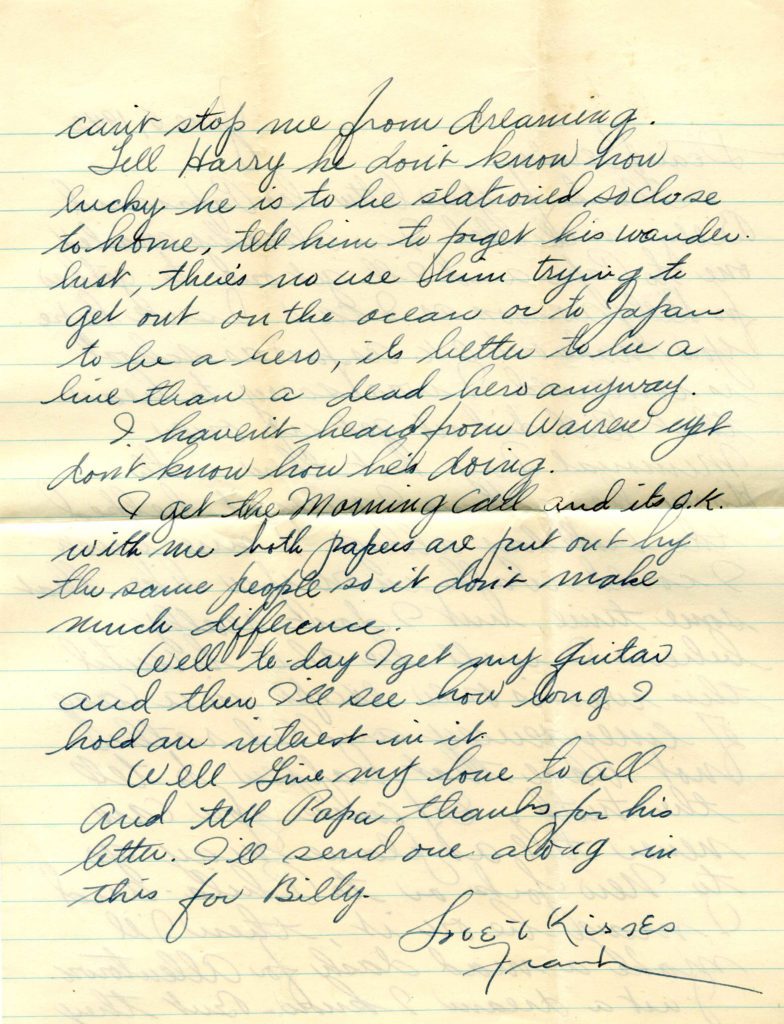 can't stop me from dreaming.
Tell Harry he don't know how
lucky he is to be stationed so close
to home, tell him to forget his wander-
lust, there's no use him trying to
get out on the ocean or to Japan
to be a hero, it's better to be a
live than a dead hero anyway.
I haven't heard from Warren yet
don't know how he's doing.
I get the Morning Call and its O.K.
with me both papers are put out by
the same people so it don't make
much difference.
Well to-day I get my guitar
and then I'll see how long I
hold an interest in it.
Well Give my love to all
And tell Papa thanks for his
letter. I'll send one along in
this for Billy.
Love + Kisses
Frank